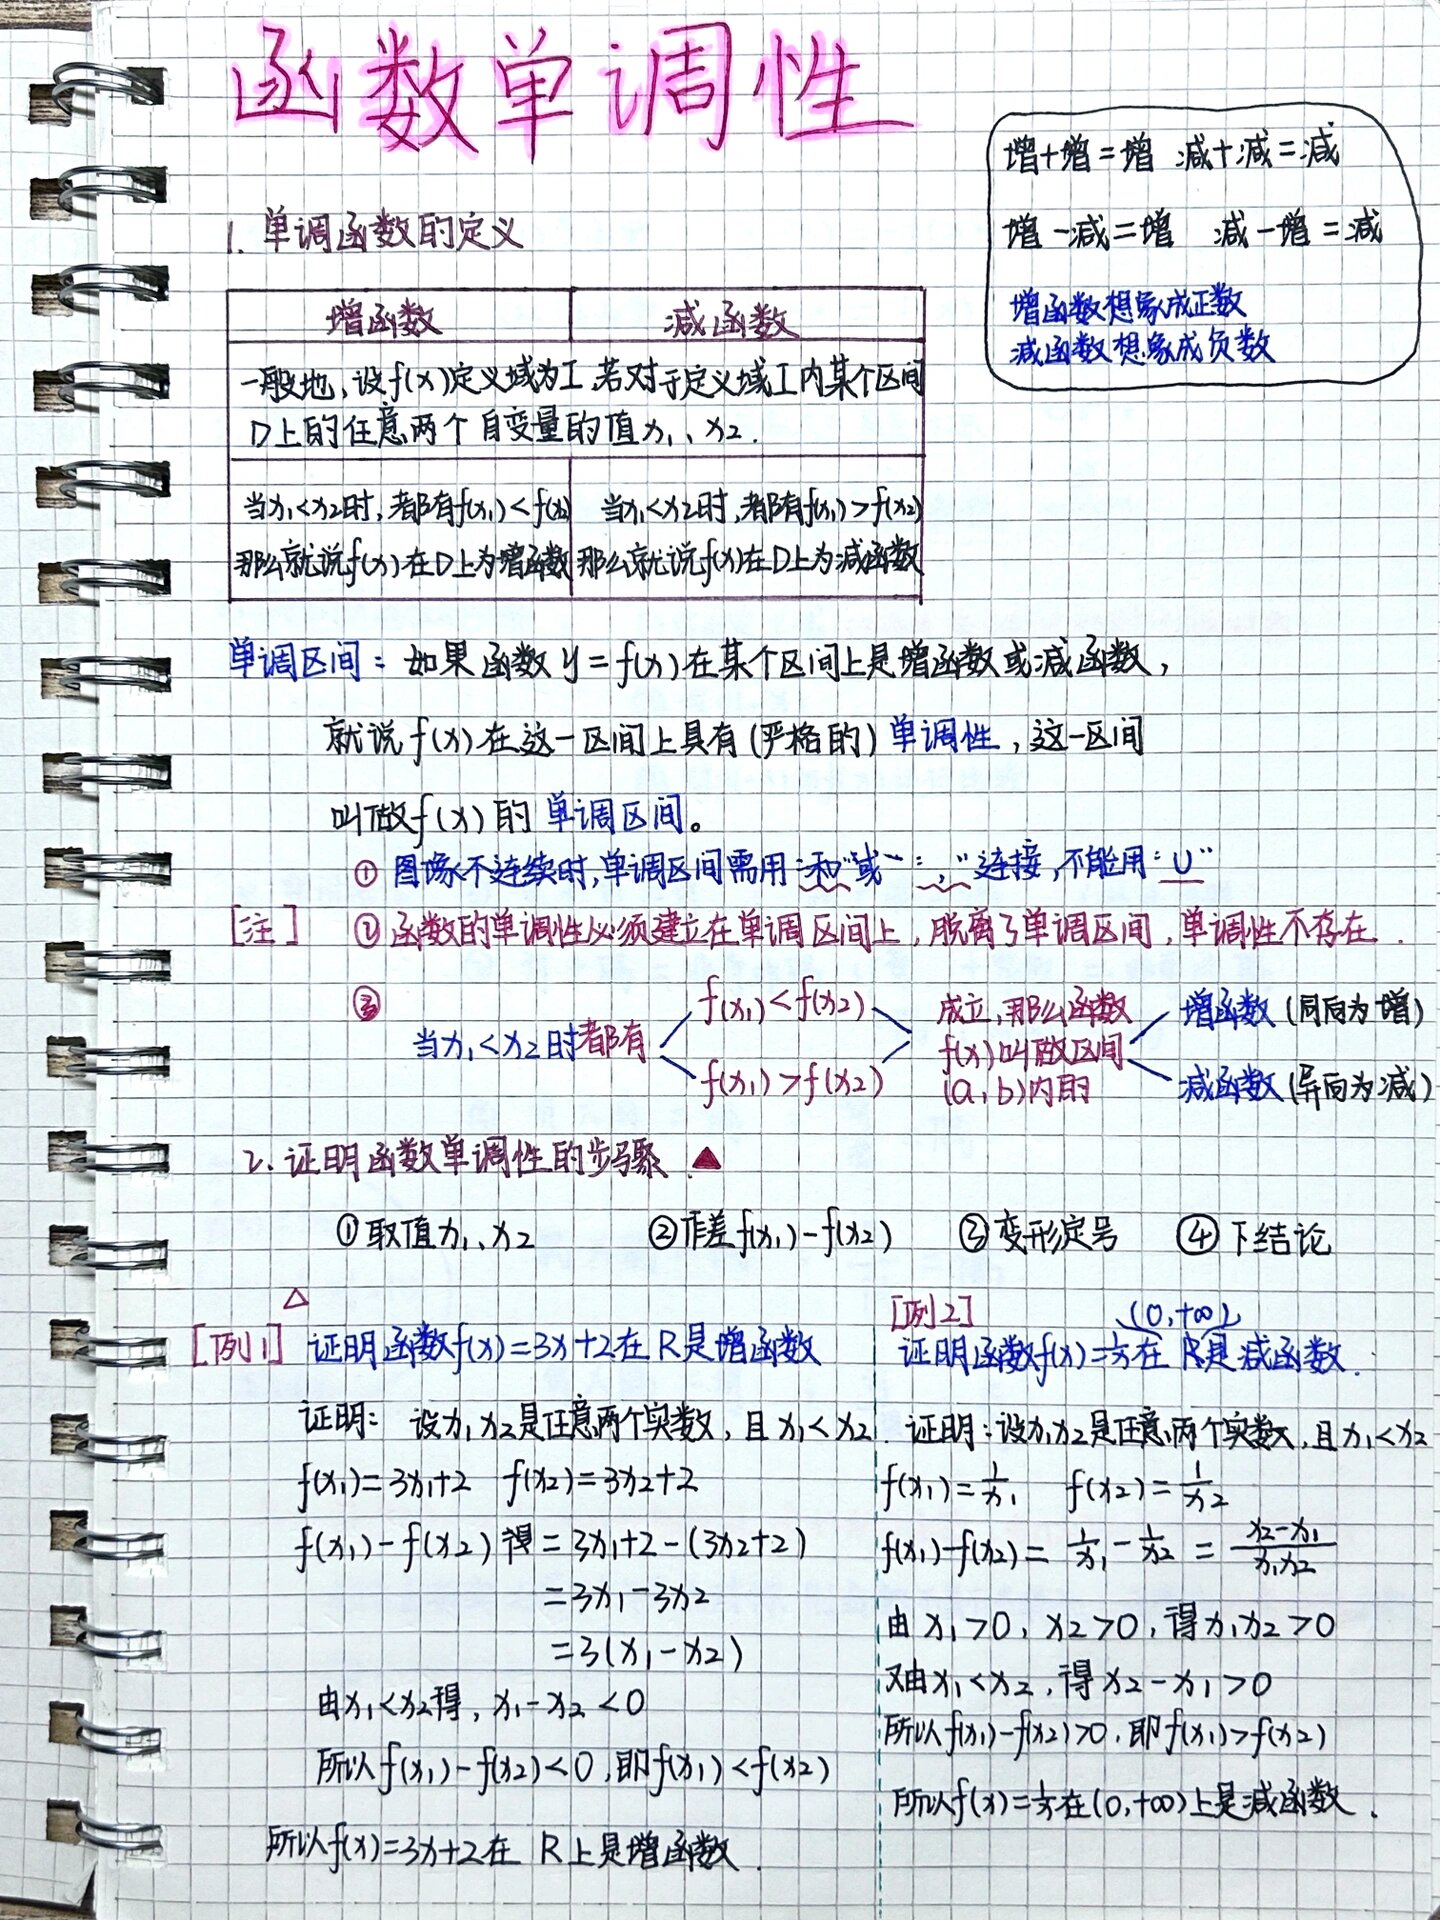 函数单调性
增+增=增 减+减=减
增-减=增 减-增=减
增函数想象成正数
减函数想象成负数
1. 单调函数的定义
增函数 减函数
一般地,设f(x)定义域为I,若对于定义域I内某个区间
D上的任意两个自变量的值x₁、x₂.
当x₁<x₂时,都有f(x₁)<f(x₂) 当x₁<x₂时,都有f(x₁)>f(x₂)
那么就说f(x)在D上为增函数 那么就说f(x)在D上为减函数
单调区间:如果函数y=f(x)在某个区间上是增函数或减函数,
就说f(x)在这一区间上具有(严格的)单调性,这一区间
叫做f(x)的单调区间。
①图像不连续时,单调区间需用“和”或“,”连接,不能用“U”
[注] ②函数的单调性必须建立在单调区间上,脱离了单调区间,单调性不存在.
③ f(x₁)<f(x₂) 成立,那么函数 增函数(同向为增)
当x₁<x₂时都有 f(x)叫做区间
f(x₁)>f(x₂) (a,b)内的 减函数(异向为减)
2. 证明函数单调性的步骤.▲
①取值x₁、x₂ ②作差f(x₁)-f(x₂) ③变形定号 ④下结论
△
[例1] 证明函数f(x)=3x+2在R是增函数
证明: 设x₁x₂是任意两个实数,且x₁<x₂.
f(x₁)=3x₁+2 f(x₂)=3x₂+2
f(x₁)-f(x₂)得=3x₁+2-(3x₂+2)
=3x₁-3x₂
=3(x₁-x₂)
由x₁<x₂得,x₁-x₂<0
所以f(x₁)-f(x₂)<0,即f(x₁)<f(x₂)
所以f(x)=3x+2在R上是增函数.
[例2] (0,+∞)
证明函数f(x)=1/x在R是减函数.
证明:设x₁x₂是任意两个实数,且x₁<x₂
f(x₁)=1/x₁ f(x₂)=1/x₂
f(x₁)-f(x₂)=1/x₁-1/x₂=(x₂-x₁)/x₁x₂
由x₁>0,x₂>0,得x₁x₂>0
又由x₁<x₂,得x₂-x₁>0
所以f(x₁)-f(x₂)>0,即f(x₁)>f(x₂)
所以f(x)=1/x在(0,+∞)上是减函数.